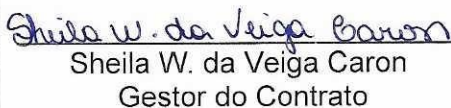 Sheila W. da Veiga Caron
Sheila W. da Veiga Caron
Gestor do Contrato